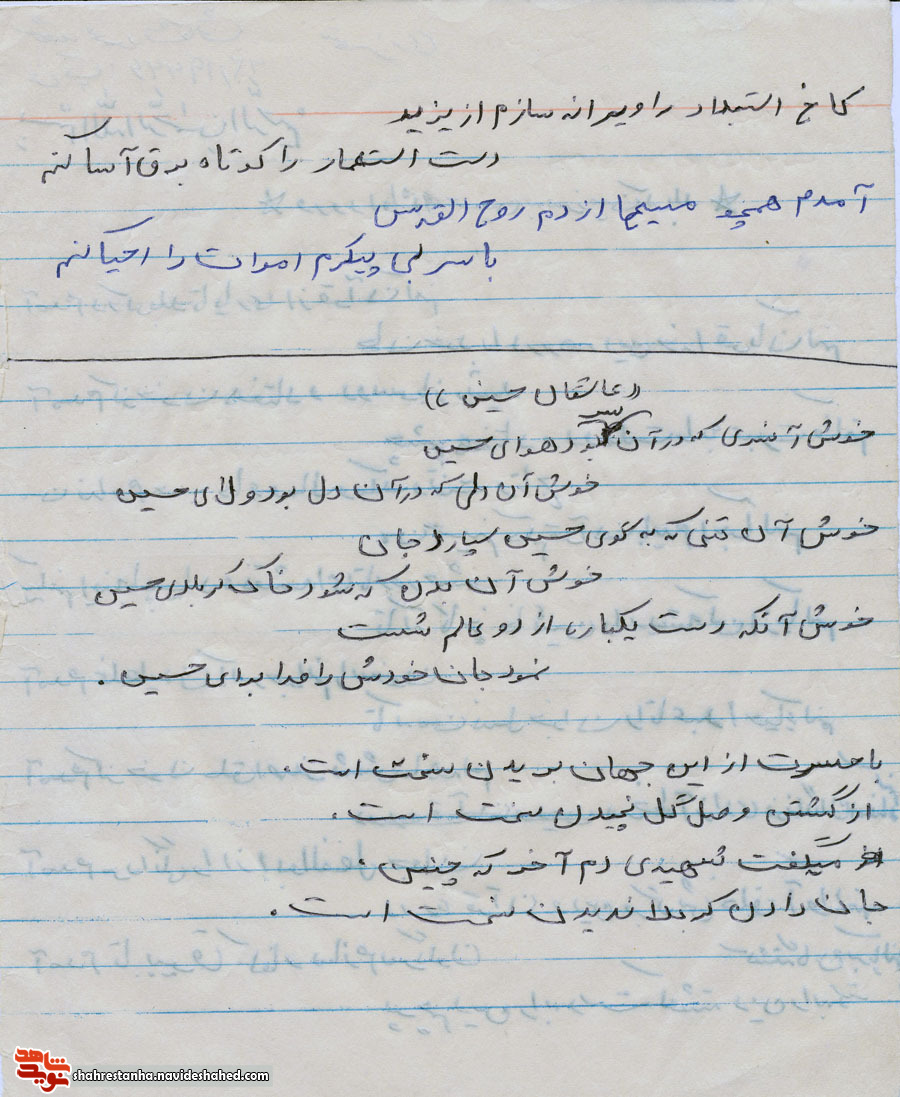 کاخ استبداد را ویرانه سازم از یزید
دست استعمار را کوتاه برق آسا کنم
آمدم همچو مسیحا از دم روح القدس
با سر بی پیکرم اموات را احیا کنم
((عاشقان حسین ع))
خوش آن سری که در آن سر بود هوای حسین
خوش آن دلی که در آن دل بود ولای حسین
خوش آن تنی که به کوی حسین سپارد جان
خوش آن بدن که شود خاک کربلای حسین
خوش آنکه دست یکباره از دو عالم شست
نمود جان خودش را فدا برای حسین .
با حسرت از این جهان بریدن سخت است .
از گلشن وصل گل نچیدن سخت است .
میگفت شهیدی دم آخر که چنین :
جان دادن کربلا ندیدن سخت است .
شاهد
نوید
shahrestanha.navideshahed.com